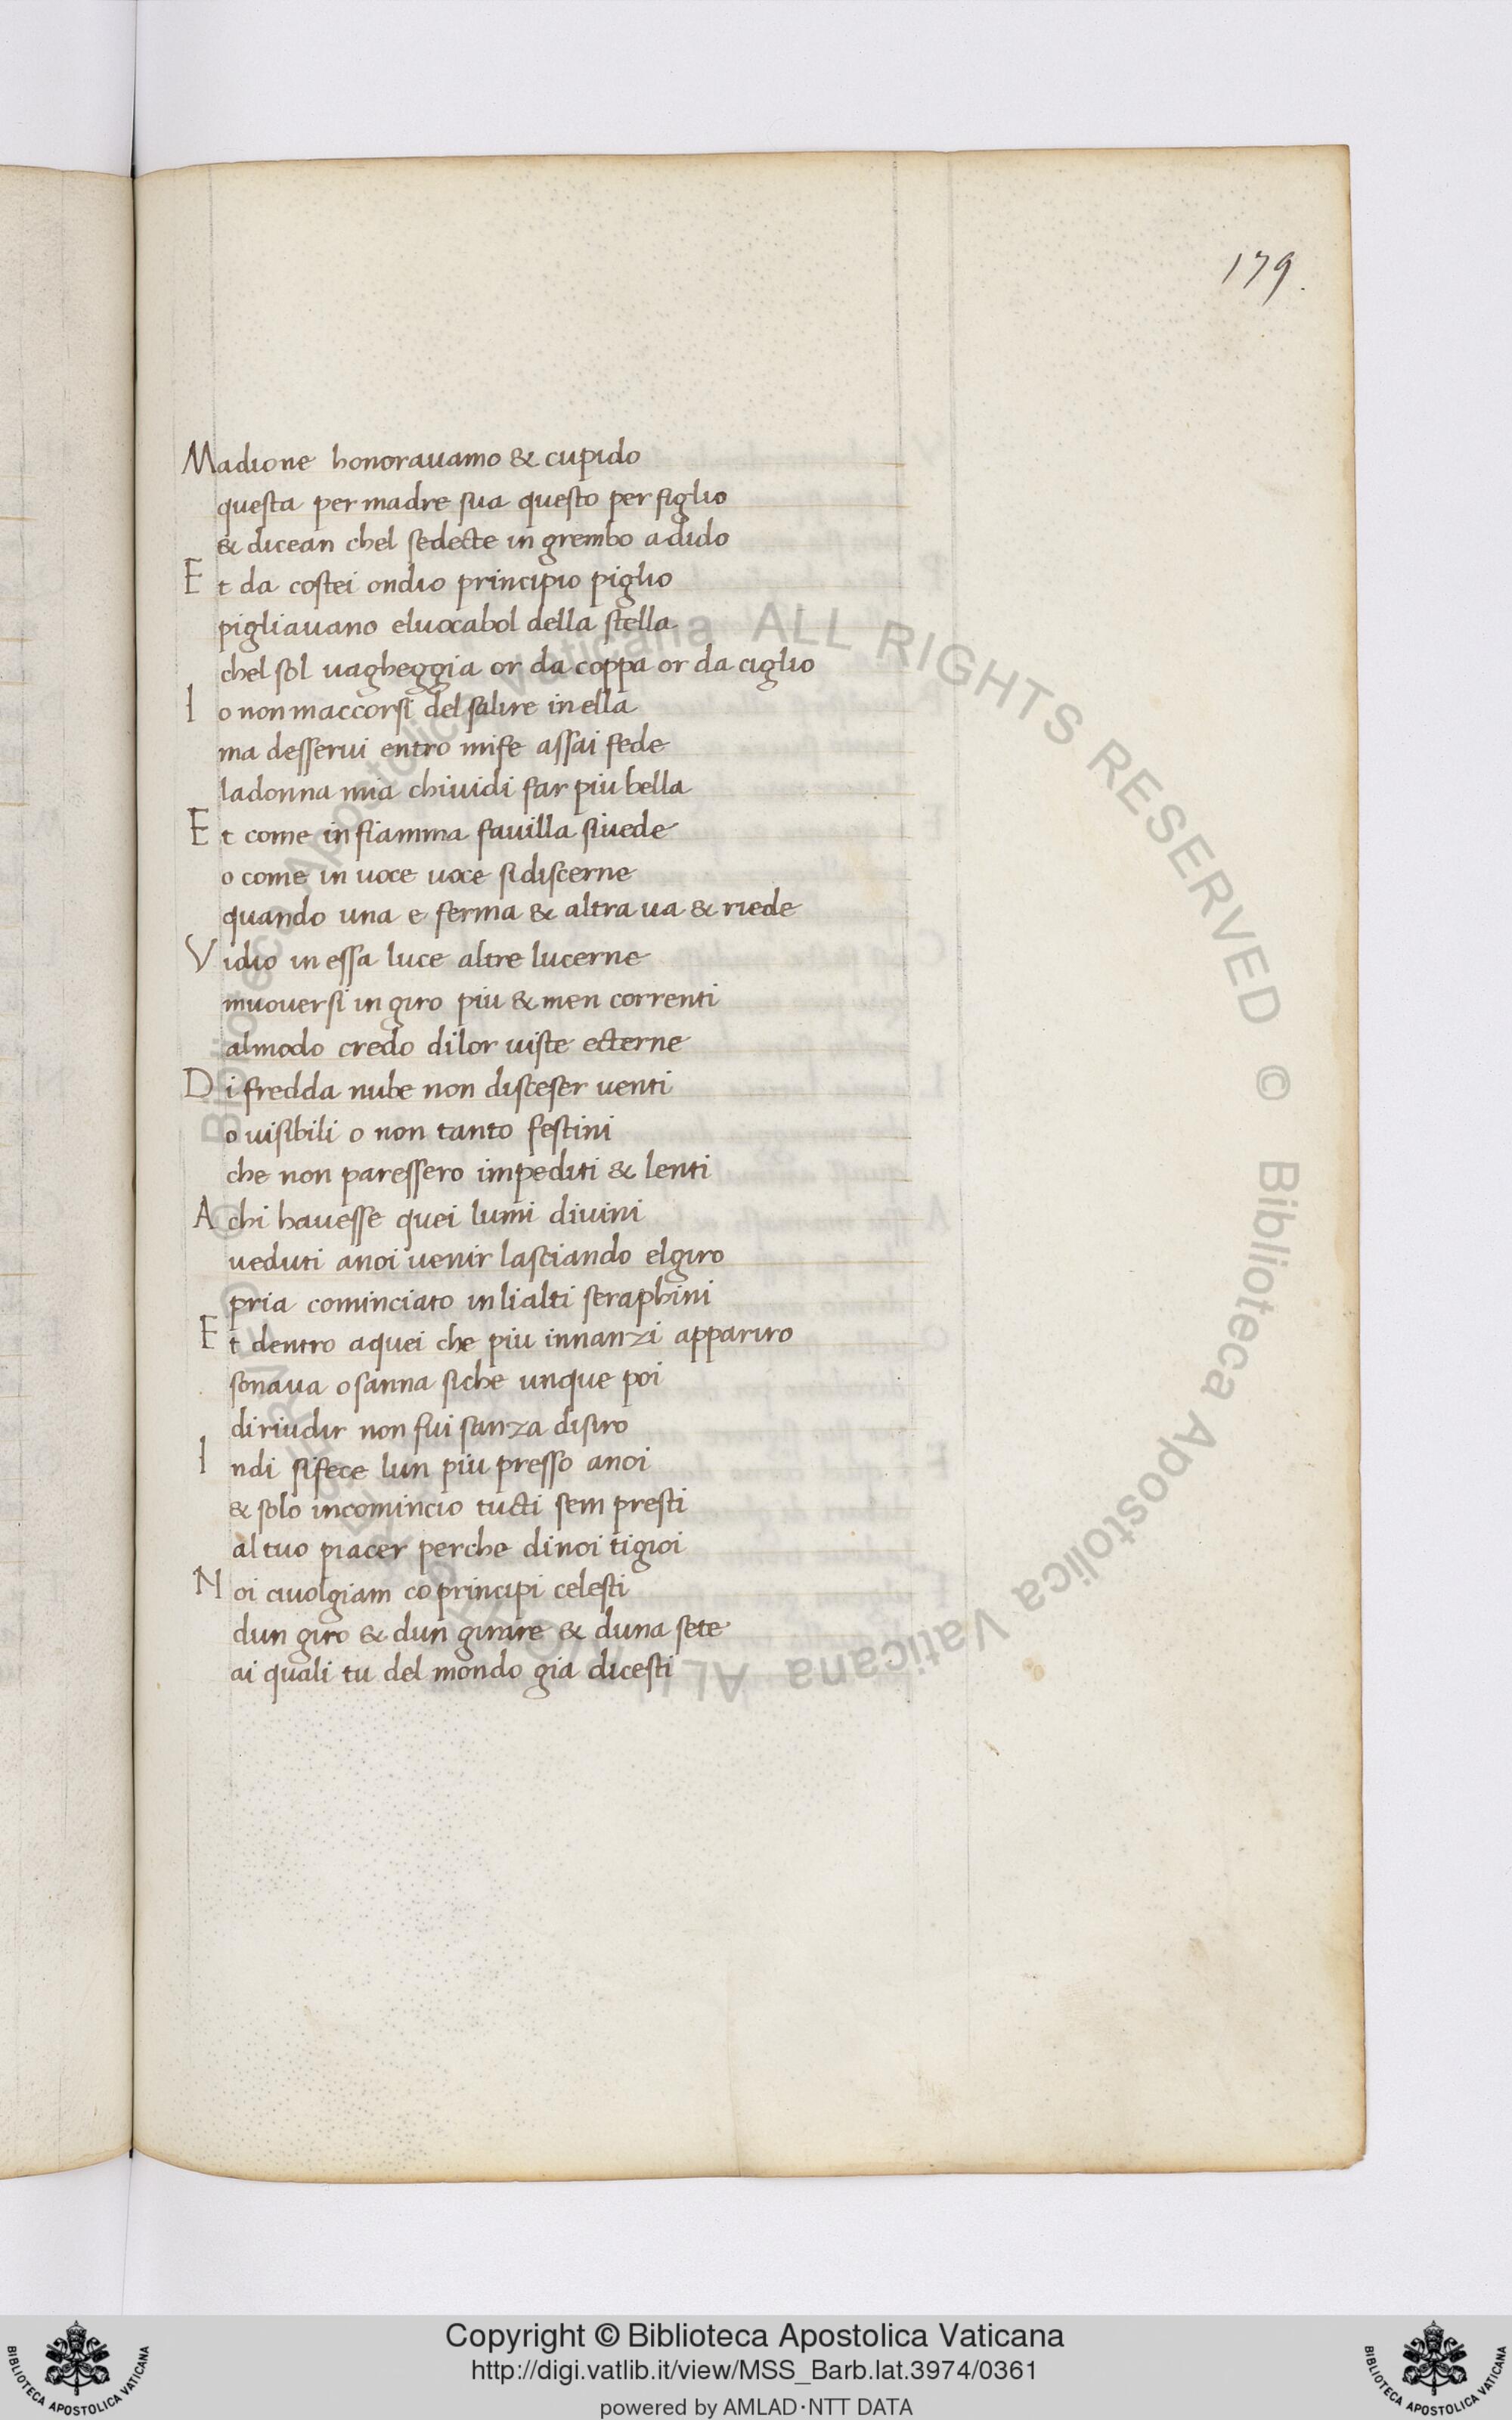 179.
Madione honorauamo & cupido
questa per madre sua questo per figlio
& dicean chel sedecte in grembo adido
Et da costei ondio principio piglio
pigliauano eluocabol della stella
chel sol uagheggia or da coppa or da ciglio
Io non maccorsi del salire in ella
ma desserui entro mife assai fede
ladonna mia chiuidi far piu bella
Et come in fiamma fauilla siuede
o come in uoce uoce sidiscerne
quando una e ferma & altra ua & riede
Vidio in essa luce altre lucerne
muouersi in giro piu & men correnti
almodo credo dilor uiste ecterne
Di fredda nube non disceser uenti
o uisibili o non tanto festini
che non paressero impediti & lenti
A chi hauesse quei lumi diuini
ueduti anoi uenir lasciando elgiro
pria cominciato inlialti seraphini
Et dentro aquei che piu innanzi appariro
sonaua osanna siche unque poi
diriudir non fui sanza disiro
Indi sifece lun piu presso anoi
& solo incomincio tucti sem presti
al tuo piacer perche dinoi tigioi
Noi ciuolgiam co principi celesti
dun giro & dun girare & duna sete
ai quali tu del mondo gia dicesti
Biblioteca Apostolica Vaticana ALL RIGHTS RESERVED © Biblioteca Apostolica Vaticana ALL RIGHTS RESERVED ©
Copyright © Biblioteca Apostolica Vaticana
http://digi.vatlib.it/view/MSS_Barb.lat.3974/0361
powered by AMLAD·NTT DATA
BIBLIOTECA APOSTOLICA VATICANA
BIBLIOTECA APOSTOLICA VATICANA